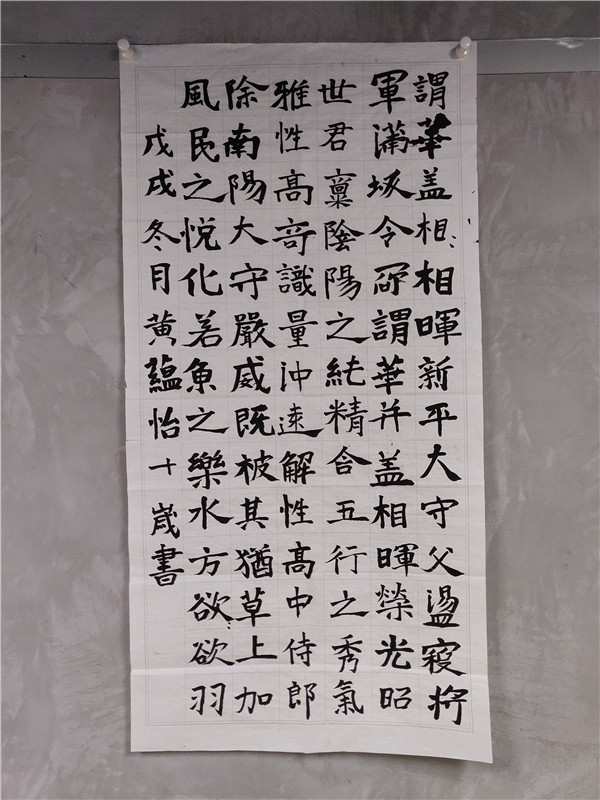 謂華盖相相暉新平大守父盪寇将
軍滿坂令所謂華并盖相暉榮光昭
世君稟陰陽之純精合五行之秀氣
雅性高奇識量沖遠解性高中侍郎
除南陽大守嚴威既被其猶草上加
風民之悅化若魚之樂水方欲欲羽
戊戌冬月黄蘊怡十歲書